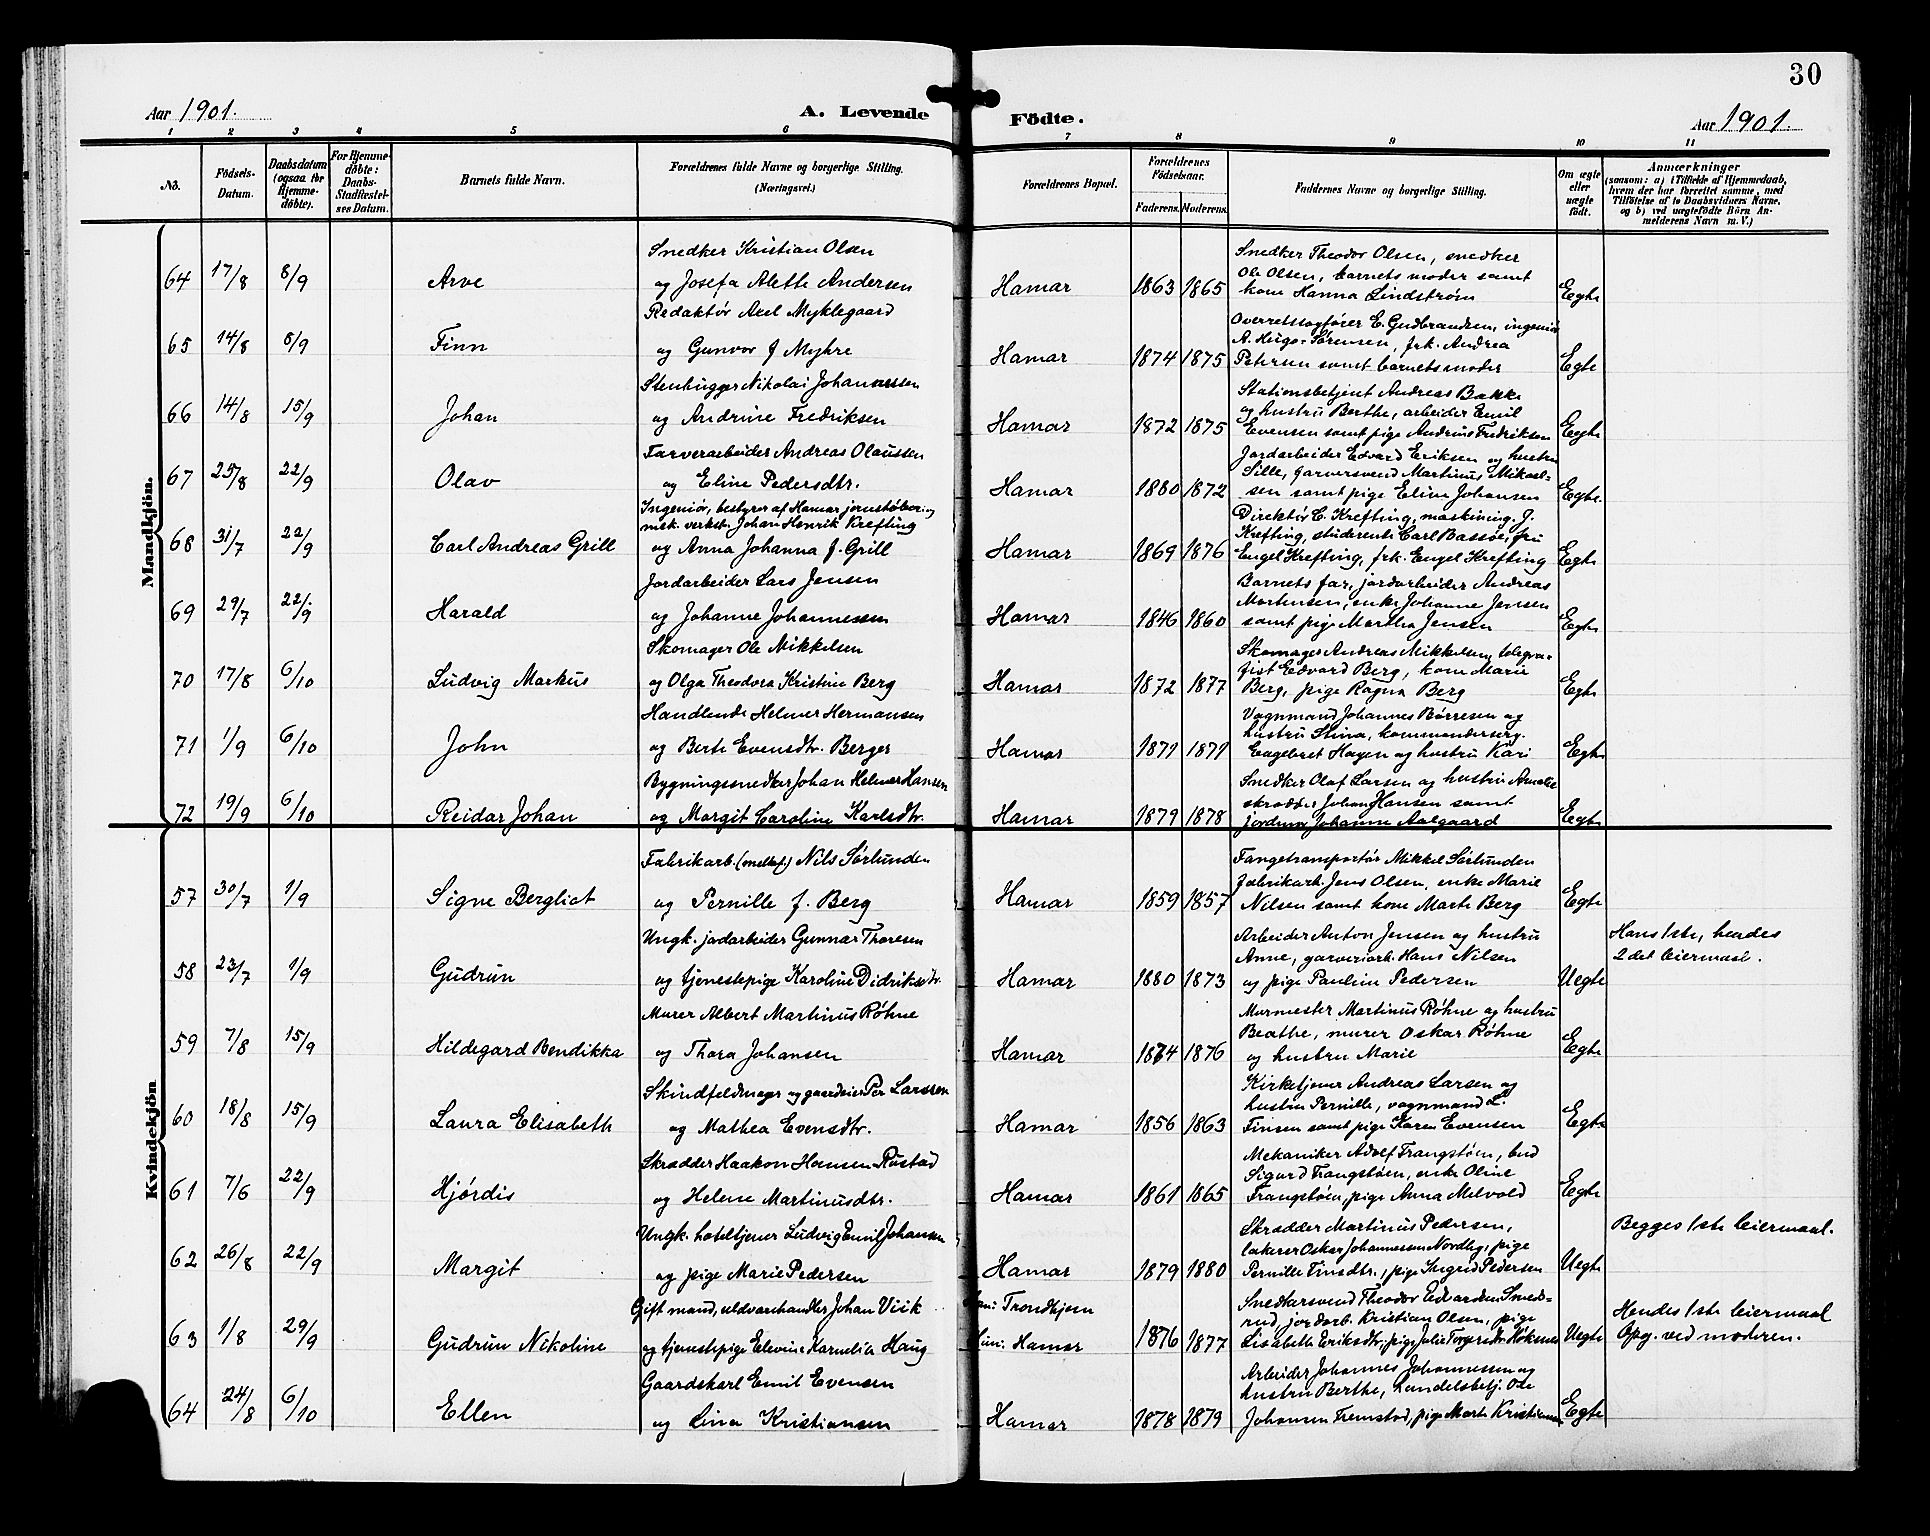 30
Aar 1901.
A. Levende Födte.
Aar 1901.
1 2 3 4 5 6 7 8 9 10 11
No.
Födsels-Datum.
Daabsdatum (ogsaa for Hjemmedöbte).
For Hjemmedöbte: Daabs-Stadfæstelses Datum.
Barnets fulde Navn.
Forældrenes fulde Navne og borgerlige Stilling.
(Næringsvei.)
Forældrenes Bopæl.
Forældrenes Födselsaar.
Faderens. Moderens.
Faddernes Navne og borgerlige Stilling.
Om ægte eller uægte födt.
Anmærkninger
(saasom: a) i Tilfælde af Hjemmedaab, hvem der har forrettet samme, med Tilföielse af to Daabsvidners Navne, og b) ved uægtefödte Börn Anmelderens Navn m. V.)
Mandkjön.
64 17/8 8/9 Arve
Snedker Kristian Olsen
og Josefa Alette Andersen
Hamar 1863 1865
Snedker Theodor Olsen, snedker
Ole Olsen, barnets moder samt
kone Hanna Lindstrøm
Egte
65 14/8 8/9 Finn
Redaktør Axel Myklegaard
og Gunvor f Myhre
Hamar 1874 1875
Overretssagfører E. Gudbrandsen, ingeniør
A. Hugo-Sørensen, frk. Andrea
Petersen samt barnets moder
Egte
66 14/8 15/9 Johan
Stenhugger Nikolai Johannessen
og Andrine Fredriksen
Hamar 1872 1875
Stationsbetjent Andreas Bakke
og hustru Berthe, arbeider Emil
Evensen samt pige Andrine Fredriksen
Egte
67 25/8 22/9 Olav
Farverarbeider Andreas Olaussen
og Eline Pedersdtr.
Hamar 1880 1872
Jordarbeider Edvard Eriksen og hustru
Sille, garversvend Martinus Mikael-
sen samt pige Eline Johansen
Egte
68 31/7 22/9 Carl Andreas Grill
Ingeniør, bestyrer af Hamar jernstøberi og
mek. verkst. Johan Henrik Krefting
og Anna Johanna f. Grill
Hamar 1869 1876
Direktør C. Krefting, maskining. J.
Krefting, studerende Carl Bassøe, fru
Engel Krefting, frk. Engel Krefting
Egte
69 29/7 22/9 Harald
Jordarbeider Lars Jensen
og Johanne Johannessen
Hamar 1846 1860
Barnets far, jordarbeider Andreas
Mortensen, enke Johanne Jensen
samt pige Martha Jensen
Egte
70 17/8 6/10 Ludvig Markus
Skomager Ole Mikkelsen
og Olga Theodora Kristine Berg
Hamar 1872 1877
Skomager Andreas Mikkelsen, telegra-
fist Edvard Berg, kone Marie
Berg, pige Ragna Berg
Egte
71 1/9 6/10 John
Handlende Helmer Hermansen
og Berte Evensdtr. Berger
Hamar 1871 1871
Vognmand Johannes Børresen og
hustru Stina, kommandersg.
Engebret Hagen og hustru Kari
Egte
72 19/9 6/10 Reidar Johan
Bygningssnedker Johan Helmer Hansen
og Margit Caroline Karlsdtr.
Hamar 1879 1878
Snedker Olaf Larsen og hustru Amalie
skrædder Johan Hansen samt
jordmor Johanne Aalgaard
Egte
Kvindekjön
57 30/7 1/9 Signe Bergliot
Fabrikarb. (melkef.) Nils Sørlunden
og Pernille f. Berg
Hamar 1859 1857
Fangetransportør Mikkel Sørlunden
fabrikarb. Jens Olsen, enke Marie
Nilsen samt kone Marte Berg
Egte
58 23/7 1/9 Gudrun
Ungk. jordarbeider Gunnar Thoresen
og tjenestepige Karoline Didriksdtr.
Hamar 1880 1873
Arbeider Anton Jensen og hustru
Anne, garveriarb. Hans Nilsen
og pige Pauline Pedersen
Uegte
Hans 1ste, hendes
2det leiermaal.
59 7/8 15/9 Hildegard Bendikka
Murer Albert Martinus Røhne
og Thora Johansen
Hamar 1874 1876
Murmester Martinus Røhne og hustru
Beathe, murer Oskar Røhne
og hustru Marie
Egte
60 18/8 15/9 Laura Elisabeth
Skindfeldmager og gaardeier Per Larssen
og Mathea Evensdtr.
Hamar 1856 1863
Kirketjener Andreas Larsen og
hustru Pernille, vognmand L.
Finsen samt pige Karen Evensen
Egte
61 7/6 22/9 Hjørdis
Skrædder Haakon Hansen Rustad
og Helene Martinusdtr.
Hamar 1861 1865
Mekaniker Adolf Frangstøen, bud
Sigurd Frangstøen, enke Oline
Frangstøen, pige Anna Melvold
Egte
62 26/8 22/9 Margit
Ungk. hoteltjener Ludvig Emil Johansen
og pige Marie Pedersen
Hamar 1879 1880
Skrædder Martinus Pedersen,
lakerer Oskar Johannessen Nordby, pige
Pernille Finsdtr., pige Ingrid Pedersen
Uegte
Begges 1ste leiermaal.
63 1/8 29/9 Gudrun Nikoline
Gift mand, uldvarehandler Johan Viik
og tjenestepige Elevine Karnelia Haug
Trondhjem
Hamar
1876 1877
Snedkersvend Theodor Edvardsen Smeds-
rud, jordarb. Kristian Olsen, pige
Lisabeth Eriksdtr., pige Julie
Uegte
Hendes 1ste leiermaal
Opg. ved moderen.
64 24/8 6/10 Ellen
Gaardskarl Emil Evensen
og Lina Kristiansen
Hamar 1878 1879
Arbeider Johannes Johannessen og
hustru Berthe, Ole
Johansen Fremstad, pige Marte Kristiansen
Egte